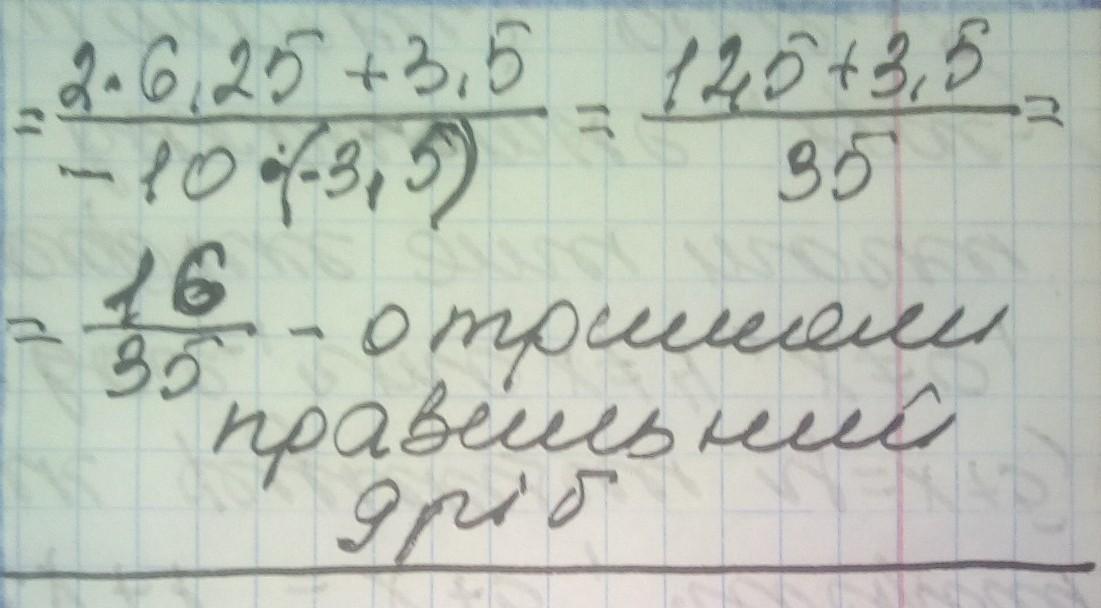 = (2·6,25+3,5)/(-10·(-3,5)) = (12,5+3,5)/35 =
= 16/35 - отримали
правильний
дріб